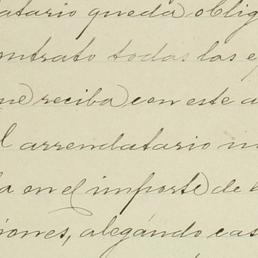 atario queda oblig
ontrato todas las e
ue reciba con este a
l arrendatario n
a en el importe de
iones, alegando cas